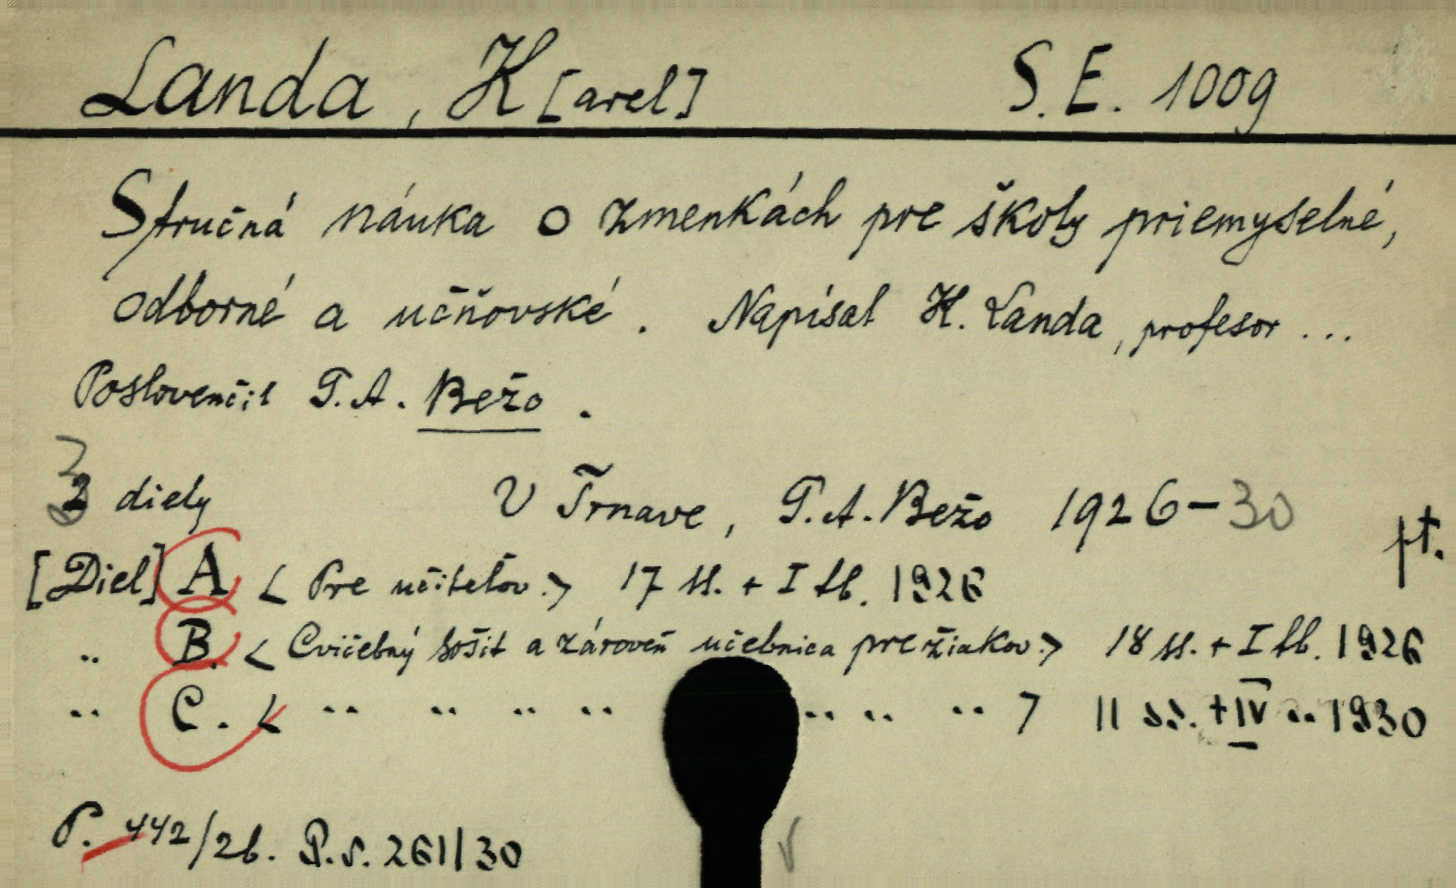 Landa, K[arel] S.E. 1009
Stručná náuka o zmenkách pre školy priemyselné,
odborné a učňovské. Napísal K. Landa, profesor ...
Poslovenčil G.A. Bežo.
3 diely V Trnave, G.A. Bežo 1926-30
pt.
[Diel] A < Pre učiteľov.> 17 ss. + I tb. 1926
" B. < Cvičebný sošit a zároveň učebnica pre žiakov.> 18 ss. + I tb. 1926
" C. < " " " " " " " > 11 ss. + IV " 1930
P. 442/26. P.s. 261/30